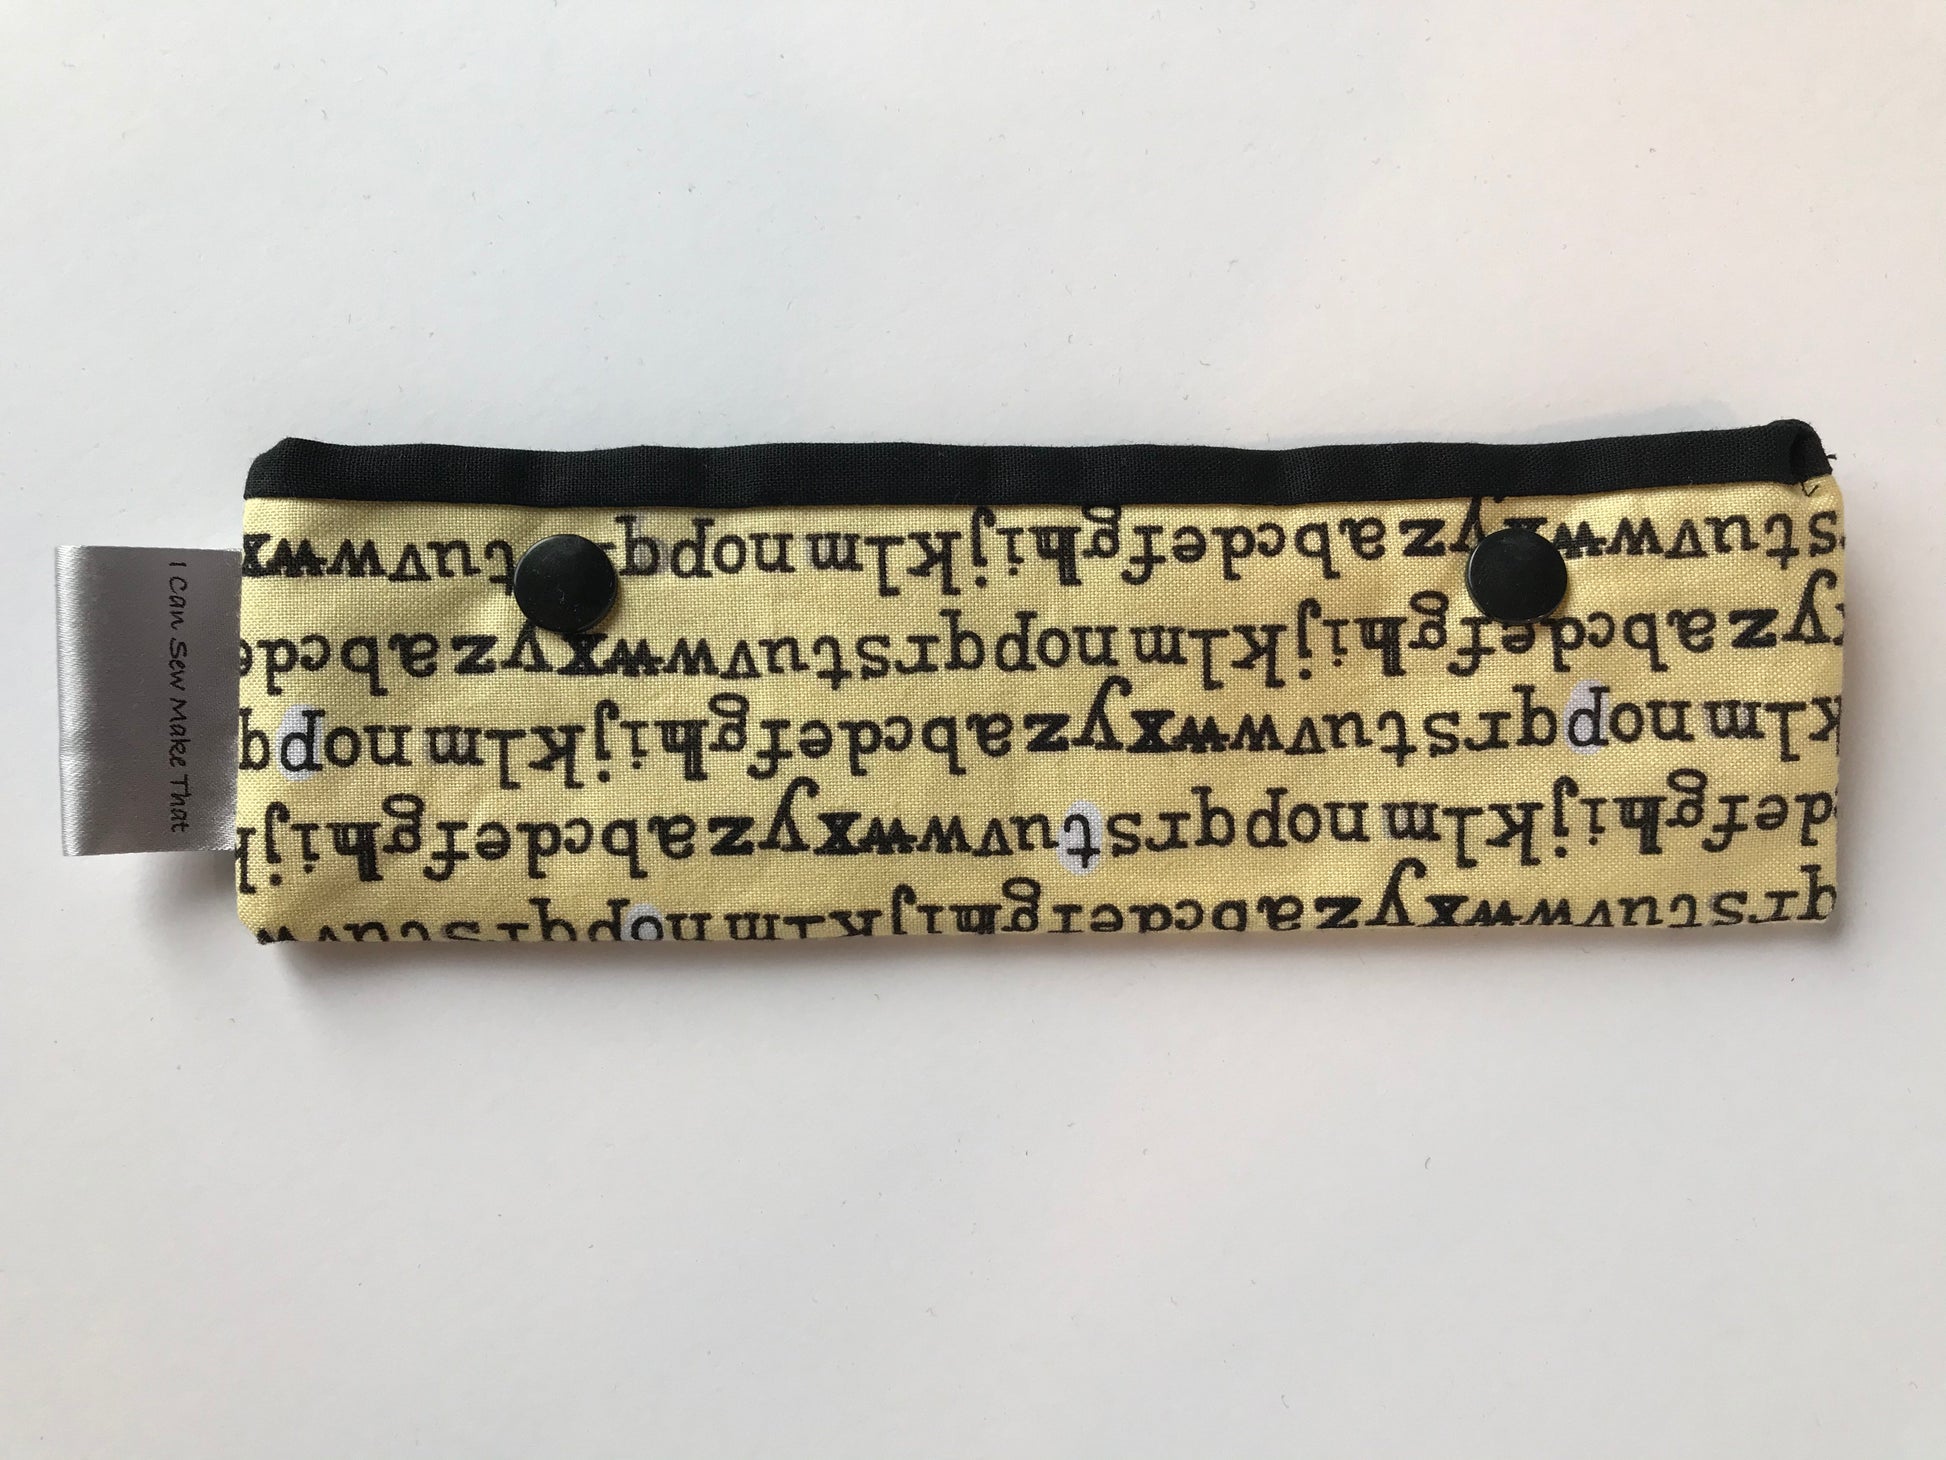 I Can Sew Make That
qrstuvwxyzabcdefghijklmnopqrstuv
defghijklmnopqrstuvwxyzabcdefghijk
klmnopqrstuvwxyzabcdefghijklmnopq
yzabcdefghijklmnopqrstuvwxyzabcde
stuvwxyzabcdefghijklmnopq tuvwx